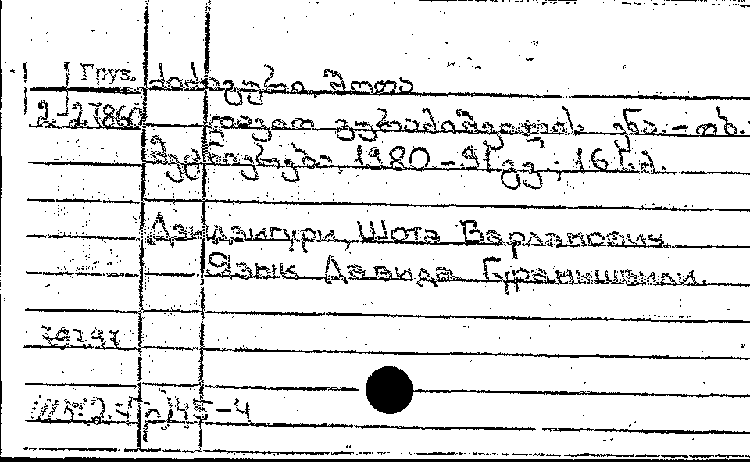 Груз. ძიძიგური, შოთა
2-27860 დავით გურამიშვილის ენა. - თბ.:
მეცნიერება, 1980 - 91 გვ.; 16 სმ.
Дзидзигури, Шота Варламович
Язык Давида Гурамишвили.
45-4